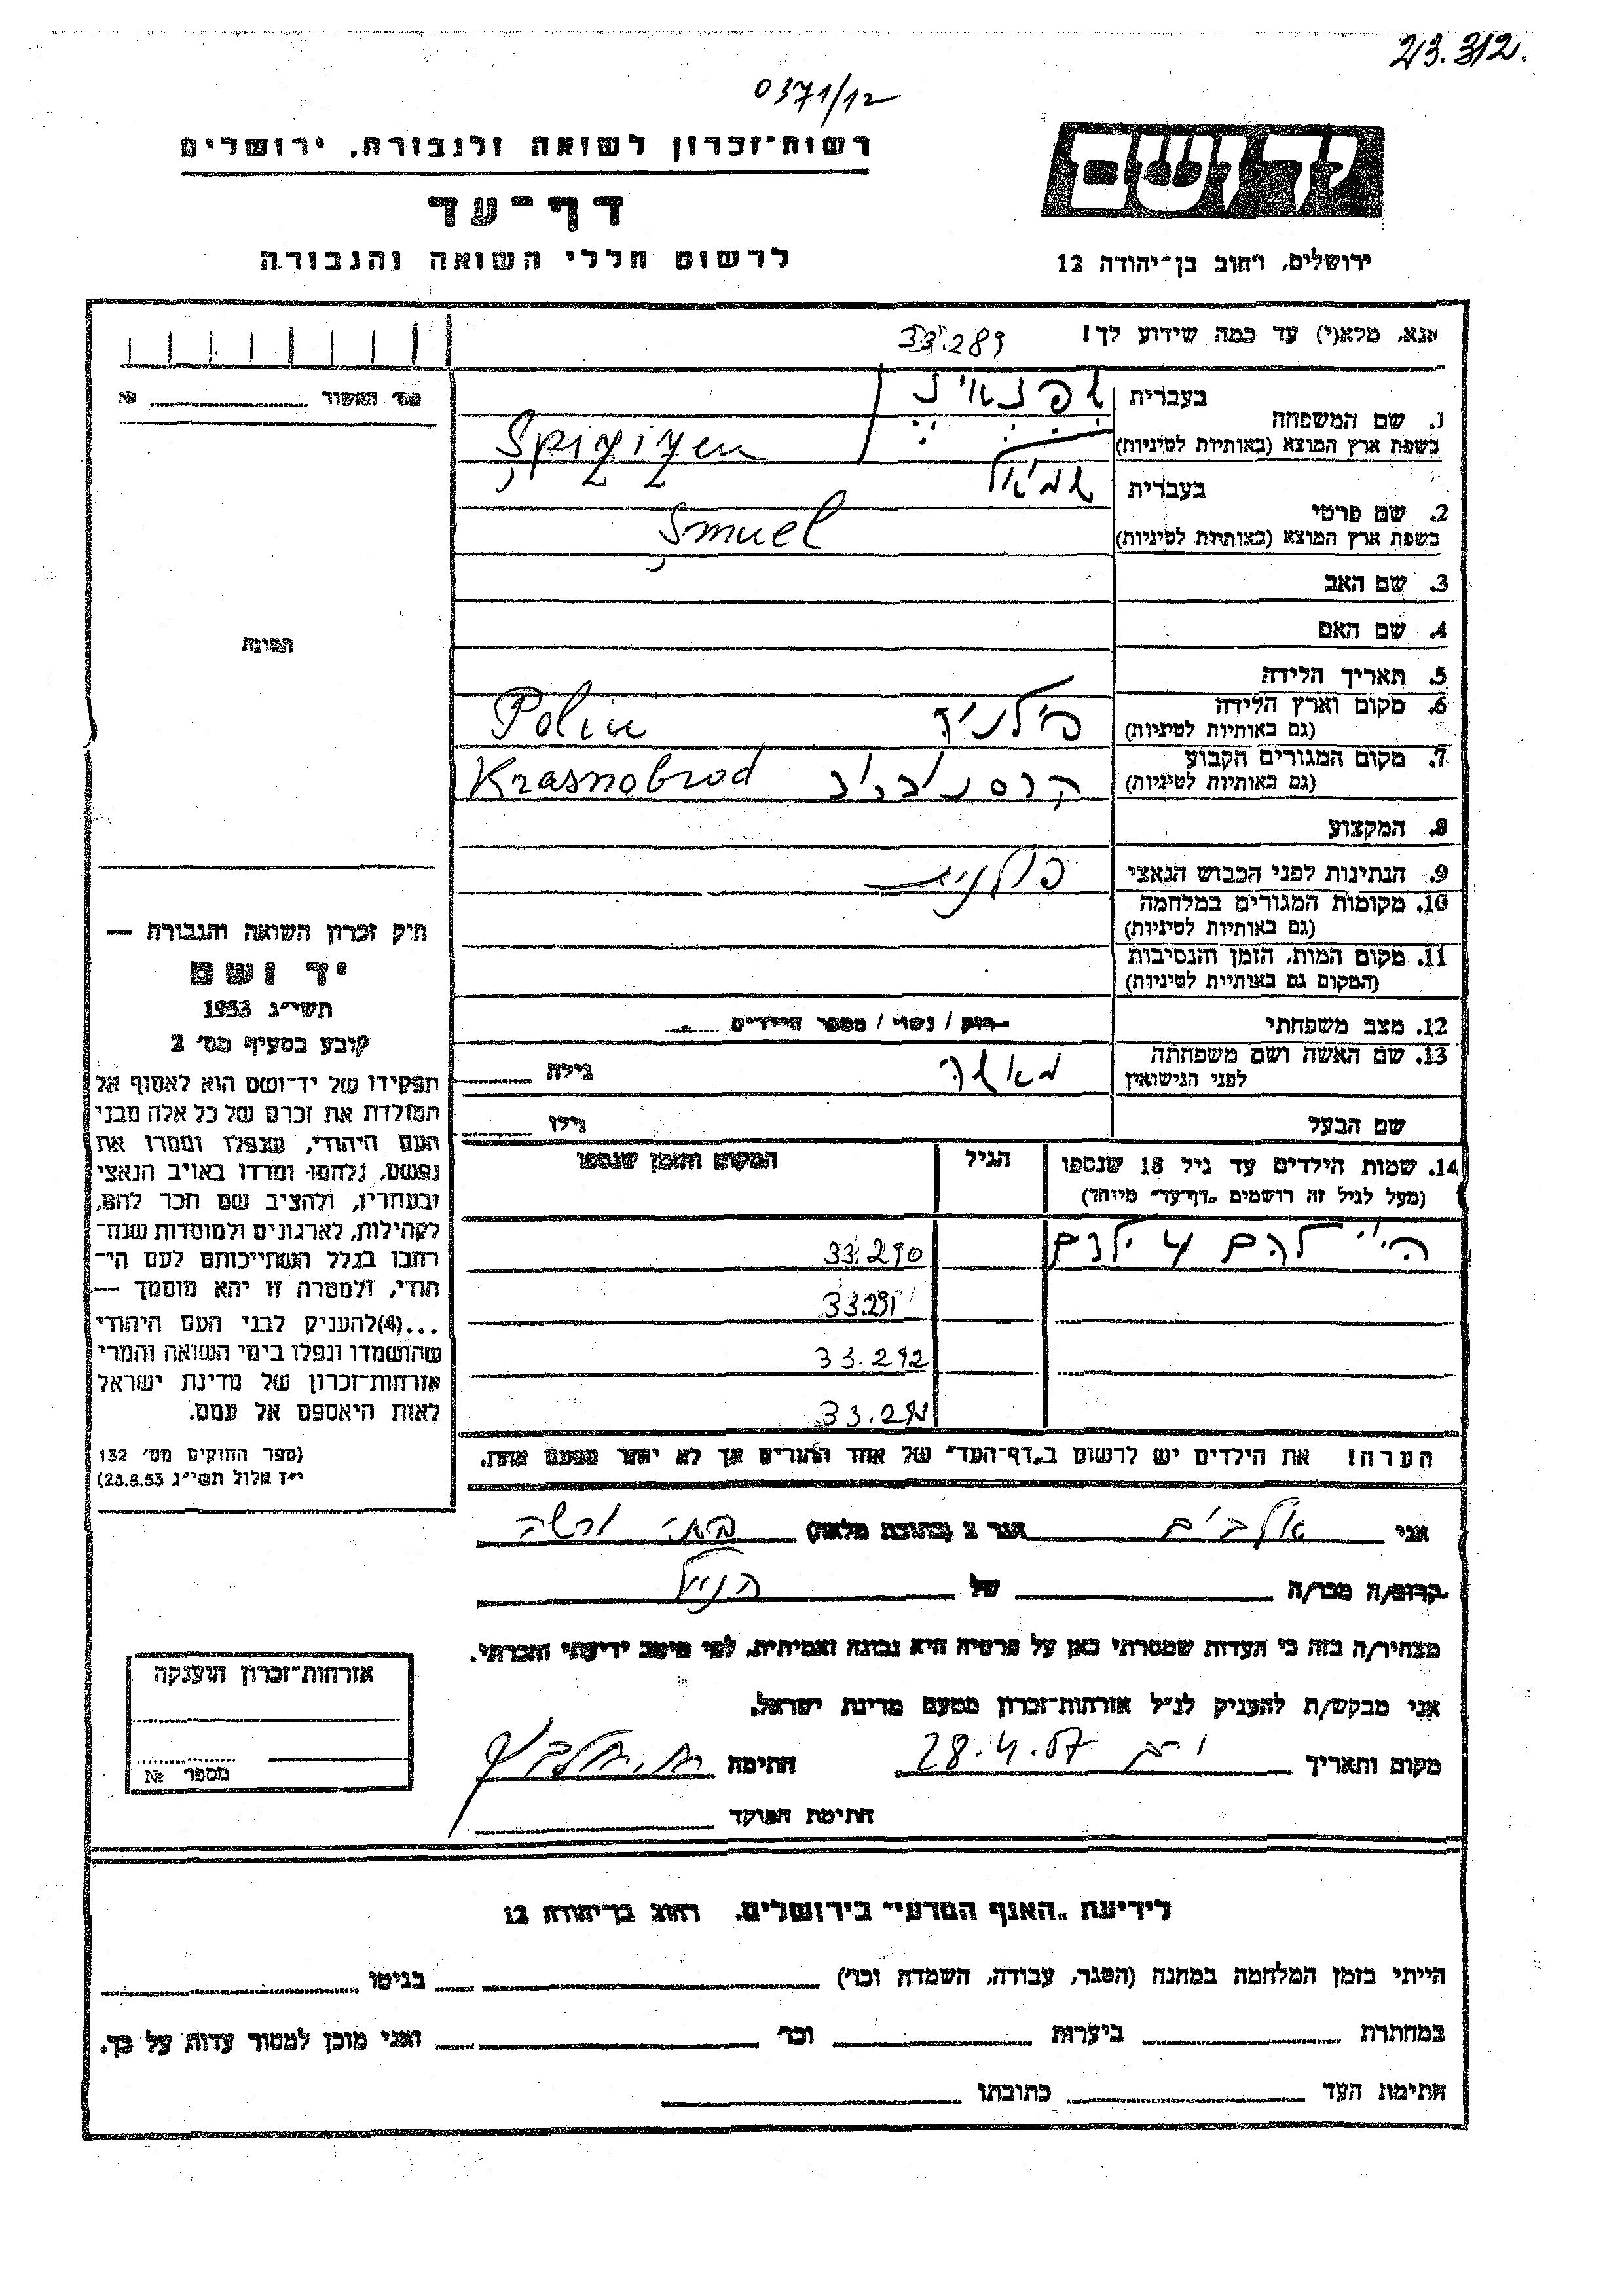 23.312.
0371/12
רשות־זכרון לשואה ולגבורה, ירושלים
דף־עד
לרשום חללי השואה והגבורה
יד ושם
ירושלים, רחוב בן־יהודה 12
אנא, מלא(י) עד כמה שידוע לך!
33.289
מס׳ האשור № 
1. שם המשפחה
בעברית
בשפת ארץ המוצא (באותיות לטיניות)
Spigizen
2. שם פרטי
בעברית שמואל
בשפת ארץ המוצא (באותיות לטיניות)
Şmuel
3. שם האב
4. שם האם
5. תאריך הלידה
6. מקום וארץ הלידה
(גם באותיות לטיניות)
Polin
7. מקום המגורים הקבוע
(גם באותיות לטיניות)
Krasnobrod
8. המקצוע
9. הנתינות לפני הכבוש הנאצי פולנית
10. מקומות המגורים במלחמה
(גם באותיות לטיניות)
11. מקום המות, הזמן והנסיבות
(המקום גם באותיות לטיניות)
12. מצב משפחתי רוק / נשוי / מספר הילדים
13. שם האשה ושם משפחתה
לפני הנישואין
גילה
שם הבעל גילו
14. שמות הילדים עד גיל 18 שנספו הגיל המקום והזמן שנספו
(מעל לגיל זה רושמים „דף־עד״ מיוחד)
היו להם 4 ילדים 33.290
33.291
33.292
33.293
הערה! את הילדים יש לרשום ב„דף־העד״ של אחד ההורים אך לא יותר מפעם אחת.
תמונה
חוק זכרון השואה והגבורה —
יד ושם
תשי״ג 1953
קובע בסעיף מס׳ 2
תפקידו של יד־ושם הוא לאסוף אל
המולדת את זכרם של כל אלה מבני
העם היהודי, שנפלו ומסרו את
נפשם, נלחמו ומרדו באויב הנאצי
ובעוזריו, ולהציב שם וזכר להם,
לקהילות, לארגונים ולמוסדות שנח־
רבו בגלל השתייכותם לעם הי־
הודי, ולמטרה זו יהא מוסמך —
...(4) להעניק לבני העם היהודי
שהושמדו ונפלו בימי השואה והמרי
אזרחות־זכרון של מדינת ישראל
לאות היאספם אל עמם.
(ספר החוקים מס׳ 132
י״ז אלול תשי״ג 28.8.53)
אני הגר ב (כתובת מלאה)
קרוב/ה מכר/ה של הנ״ל
מצהיר/ה בזה כי העדות שמסרתי כאן על פרטיה היא נכונה ואמיתית, לפי מיטב ידיעתי והכרתי.
אני מבקש/ת להעניק לנ״ל אזרחות־זכרון מטעם מדינת ישראל.
מקום ותאריך 28.4.57 חתימה
חתימת הפוקד
אזרחות־זכרון הוענקה
מספר №
לידיעת „האגף המדעי״ בירושלים. רחוב בן־יהודה 12
הייתי בזמן המלחמה במחנה (הסגר, עבודה, השמדה וכו׳) בגיטו
במחתרת ביערות וכו׳ ואני מוכן למסור עדות על כך.
חתימת העד כתובתו